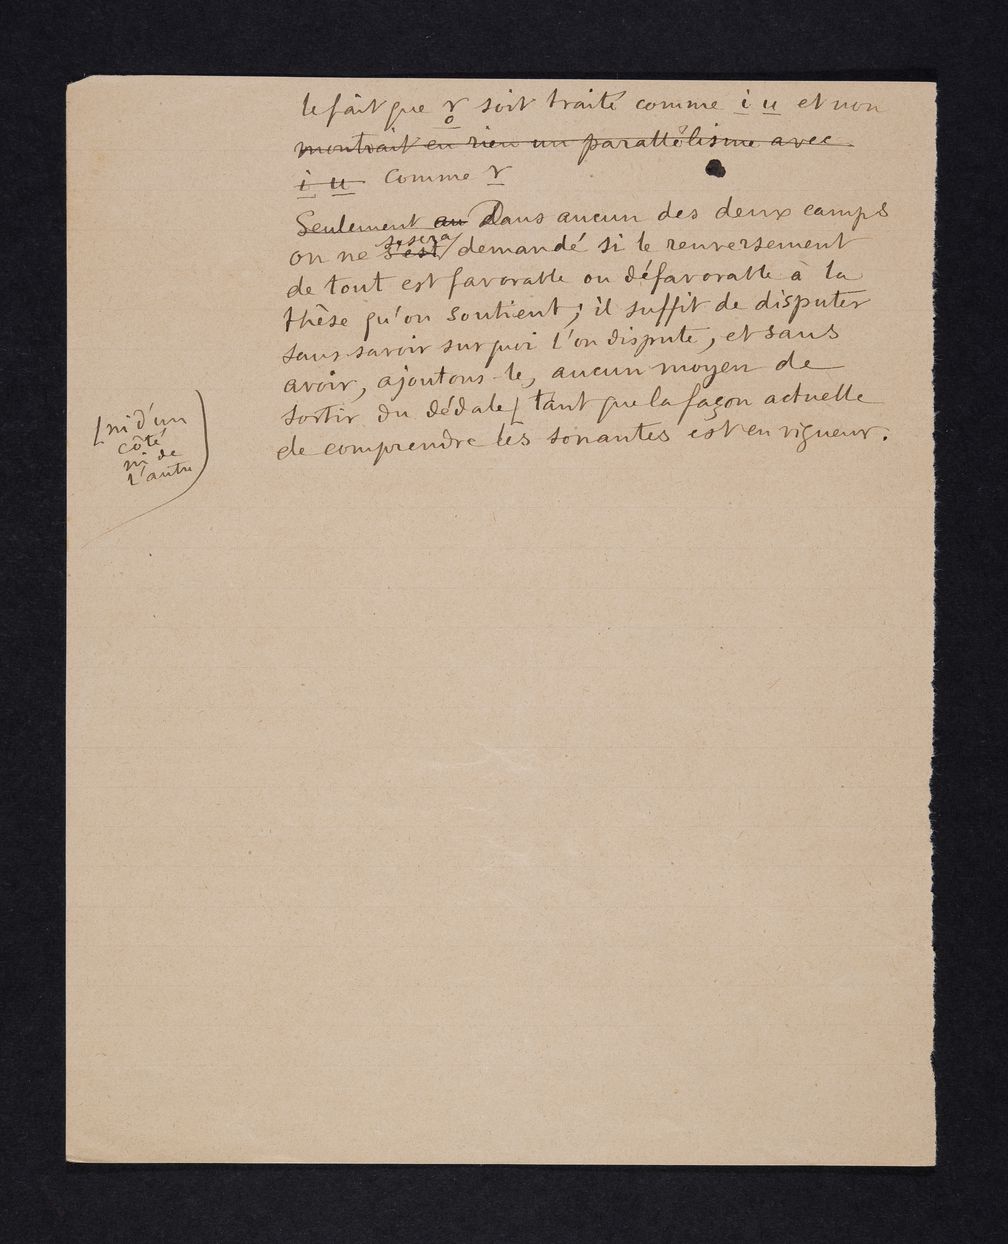 le fait que r̥ soit traité comme i u et non
montrait en rien un parallélisme avec
i u comme r
Seulement au Dans aucun des deux camps
on ne s'est se sera demandé si le renversement
de tout est favorable ou défavorable à la
thèse qu'on soutient ; il suffit de disputer
sans savoir sur quoi l'on dispute, et sans
avoir, ajoutons-le, aucun moyen de
sortir du dédale [ tant que la façon actuelle
de comprendre les sonantes est en vigueur.
[ ni d'un
côté
ni de
l'autre